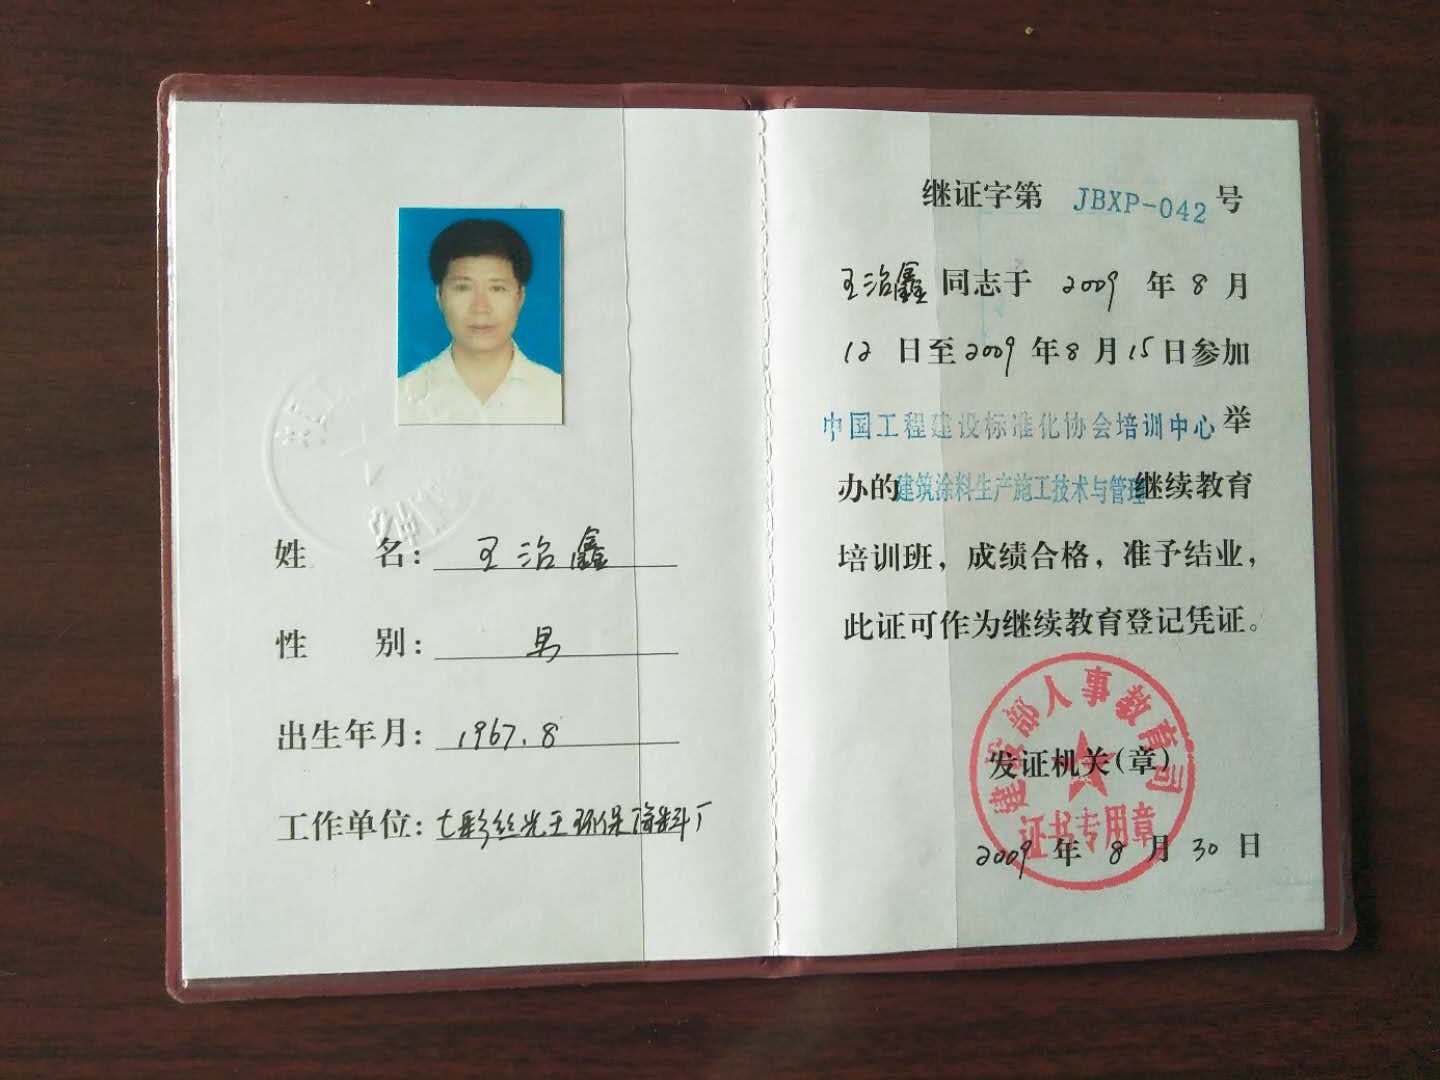 姓 名: 王治鑫
性 别: 男
出生年月: 1967.8
工作单位: 七彩丝光王环保涂料厂
继证字第 JBXP-042 号
王治鑫 同志于 2009 年 8 月
12 日至 2009 年 8 月 15 日参加
中国工程建设标准化协会培训中心 举
办的 建筑涂料生产施工技术与管理 继续教育
培训班，成绩合格，准予结业，
此证可作为继续教育登记凭证。
建设部人事教育司
发证机关(章)
证书专用章
2009 年 8 月 30 日